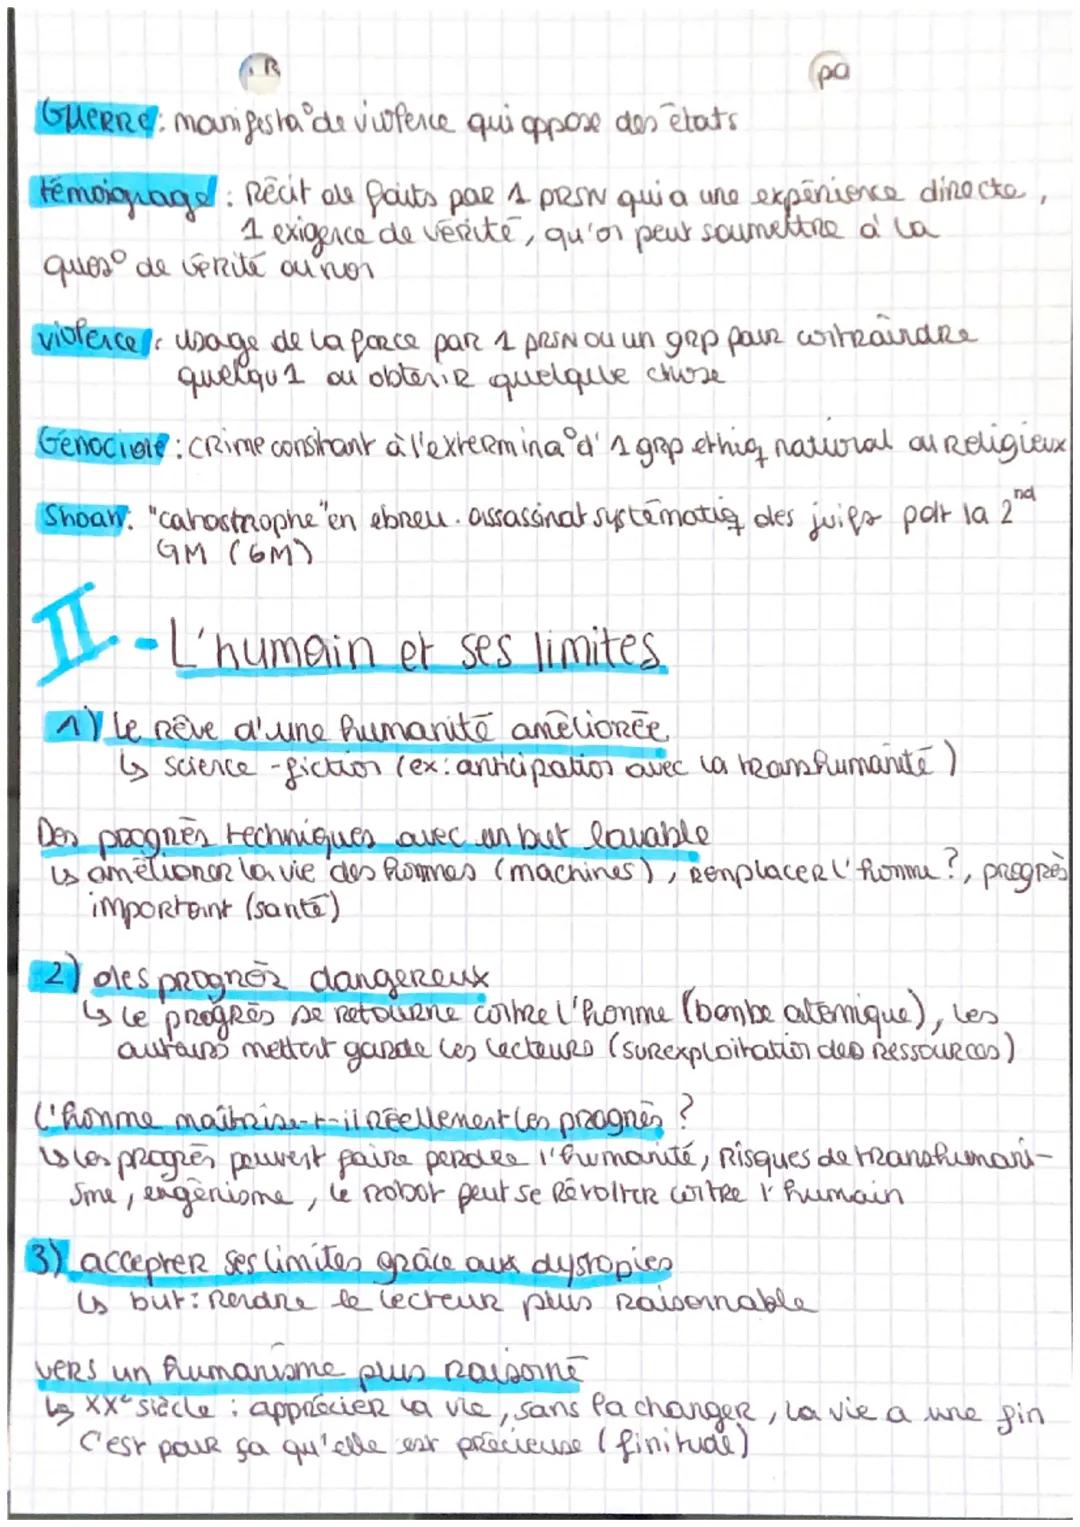 R
pa
Guerre : manifesta° de violence qui oppose des états
témoignage : Récit de faits par 1 PRSN qui a une expérience directe,
1 exigence de vérité, qu'on peut soumettre à la
ques° de vérité ou non
violence : usage de la force par 1 PRSN ou un grp pour contraindre
quelqu1 ou obtenir quelque chose
Génocide : crime consitant à l'extermina° d'1 grp ethiq national ou Religieux
Shoah : "catastrophe" en ebreu. assassinat systématiq des juifs pdt la 2nd
GM (6M)
II - L'humain et ses limites
1) Le Rêve d'une humanité améliorée
↳ science-fiction (ex: anticipation avec la transhumanité)
Des progrès techniques avec un but louable
↳ améliorer la vie des hommes (machines), Remplacer l'homme ?, progrès
important (santé)
2) des progrès dangereux
↳ Le progrès se retourne contre l'homme (bombe atomique), les
auteurs mettent garde les lecteurs (surexploitation des Ressources)
L'homme maîtrise-t-il Réellement les progrès ?
↳ les progrès peuvent faire perdre l'humanité, Risques de transhumani-
sme, eugénisme, le robot peut se Révolter contre l'humain
3) accepter ses limites grâce aux dystopies
↳ but : Rendre le lecteur plus Raisonnable
vers un humanisme plus raisonné
↳ XXe siècle : apprécier la vie, sans la changer, la vie a une fin
C'est pour ça qu'elle est précieuse (finitude)